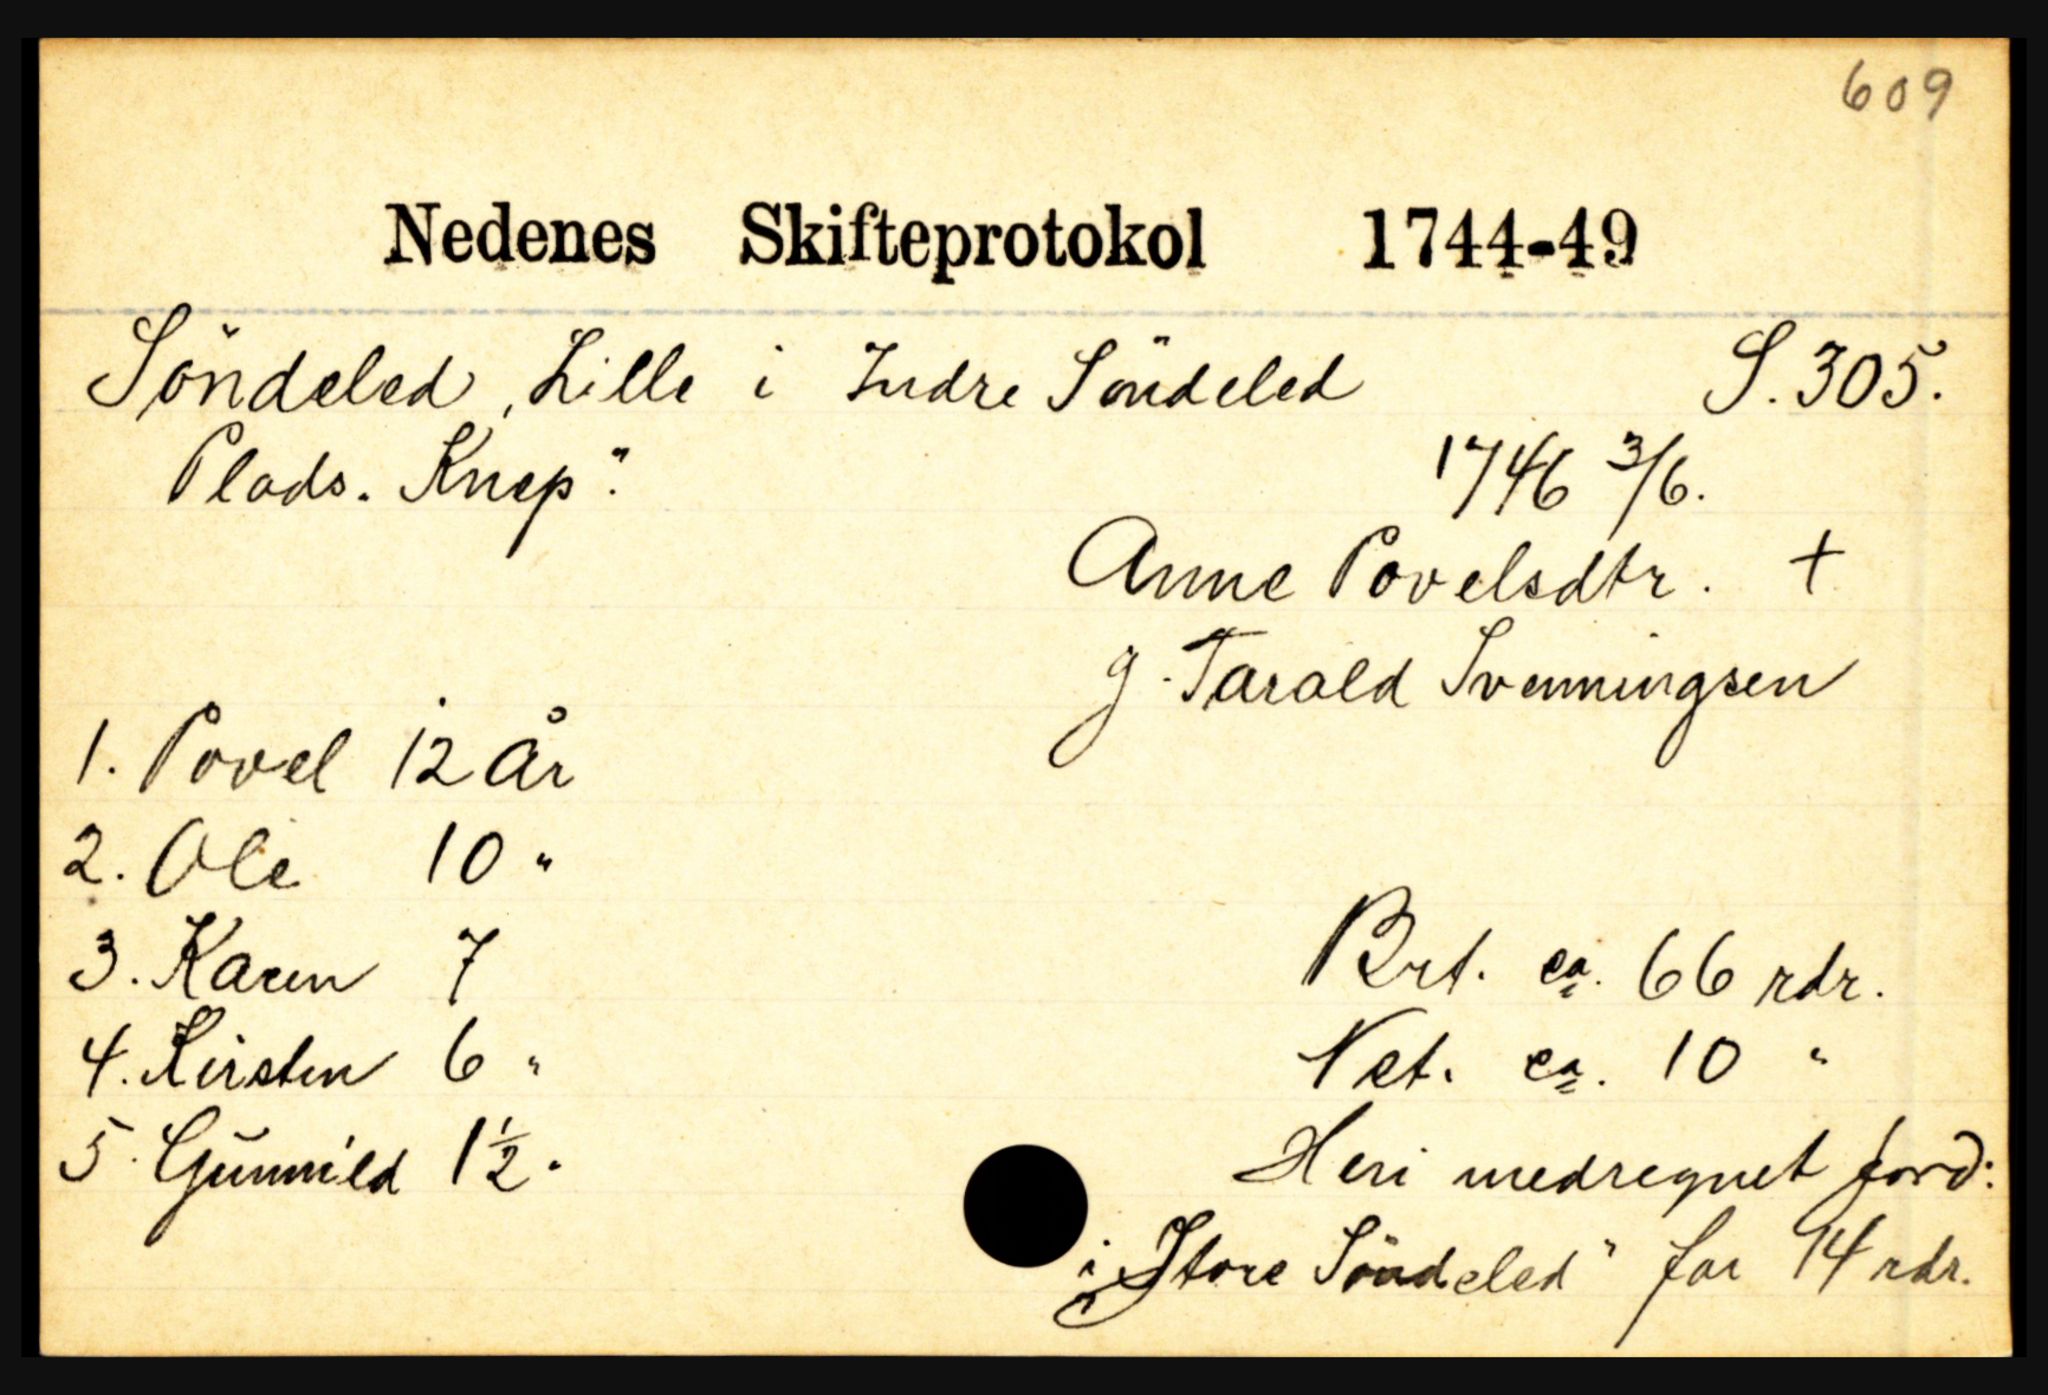 609
Nedenes Skifteprotokol 1744-49
Söndeled, Lille i Indre Söndeled S. 305.
Plads. Knep".
1746 3/6.
Anne Povelsdtr. +
g. Tarald Svenningsen
1. Povel 12 År
2. Ole 10 "
3. Karen 7
4. Kirsten 6 "
5. Gunnild 1½ "
Brt. ca. 66 rdr.
Net. ca. 10 "
Heri medregnet jord:
i „Store Söndeled" for 94 rdr.